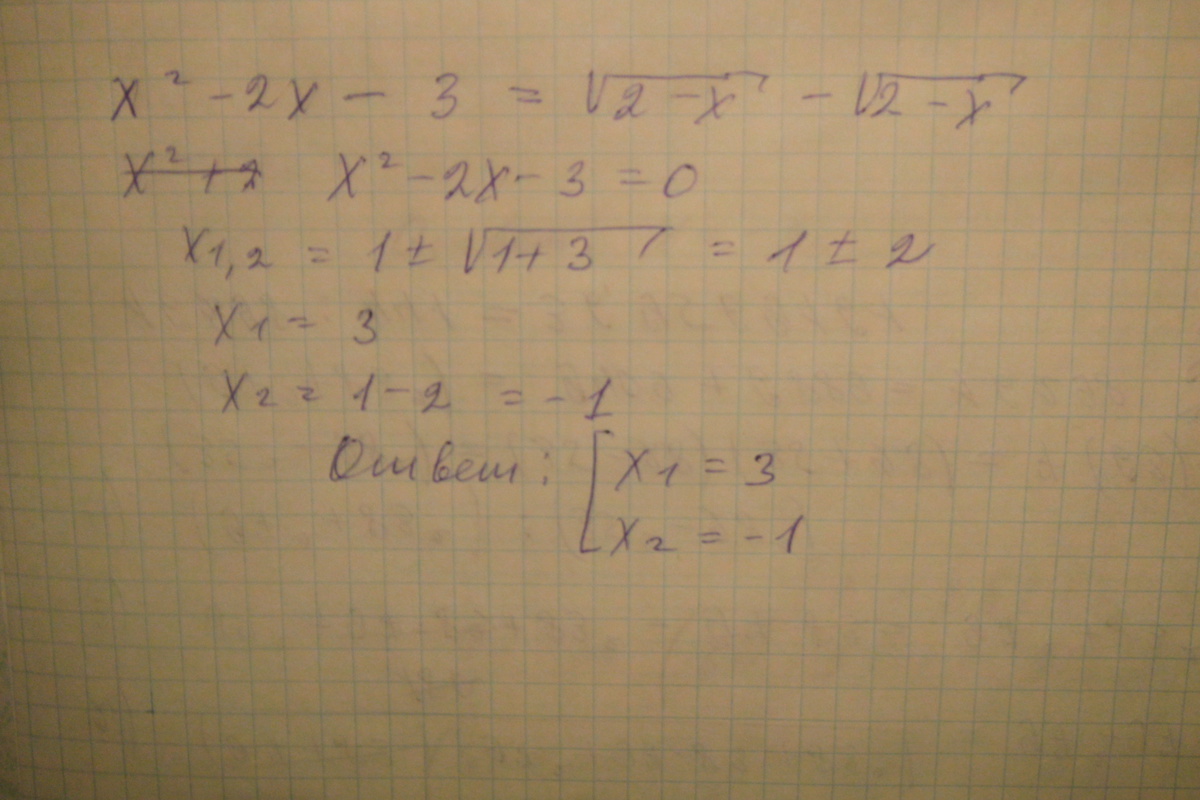 x² - 2x - 3 = √(2 - x) - √(2 - x)
x² + 2 x² - 2x - 3 = 0
x1,2 = 1 ± √(1 + 3) = 1 ± 2
x1 = 3
x2 = 1 - 2 = -1
Ответ: [ x1 = 3
x2 = -1